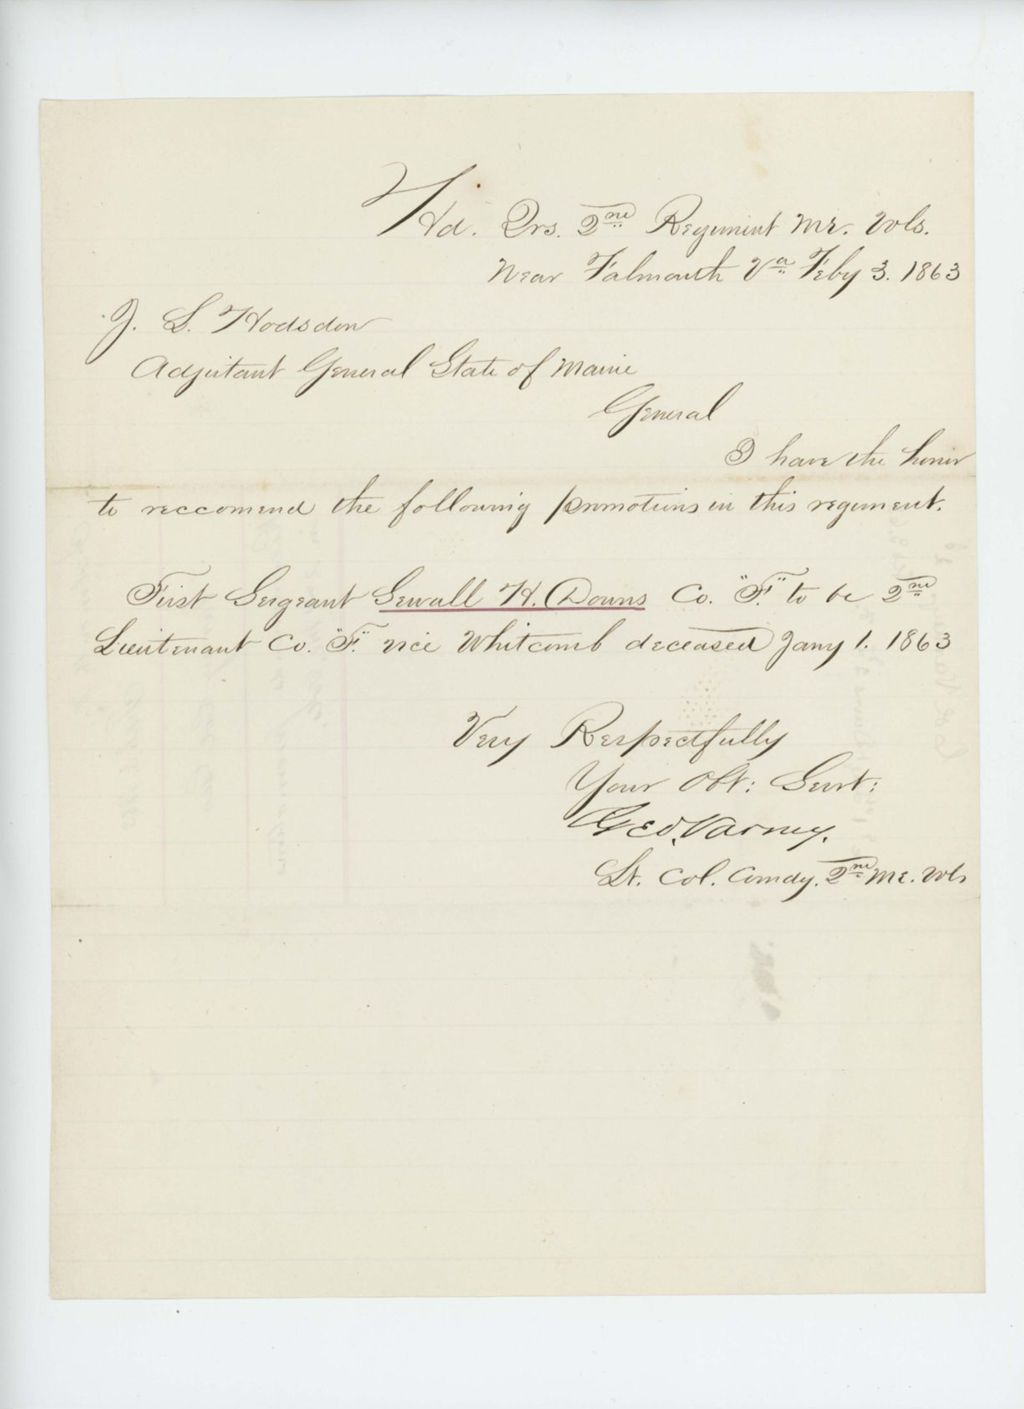 Hd. Qrs. 2nd Regiment Me. Vols.
Near Falmouth Va Feby 3. 1863
J. L. Hodsdon
Adjutant General State of Maine
General
I have the honor
to reccomend the following promotions in this regiment.
First Sergeant Sewall H. Downs Co. "F." to be 2nd
Lieutenant Co. "F." vice Whitcomb deceased Jany 1. 1863
Very Respectfully
Your Obt: Servt:
Geo. Varney.
Lt. Col. Comdg. 2nd Me. Vols